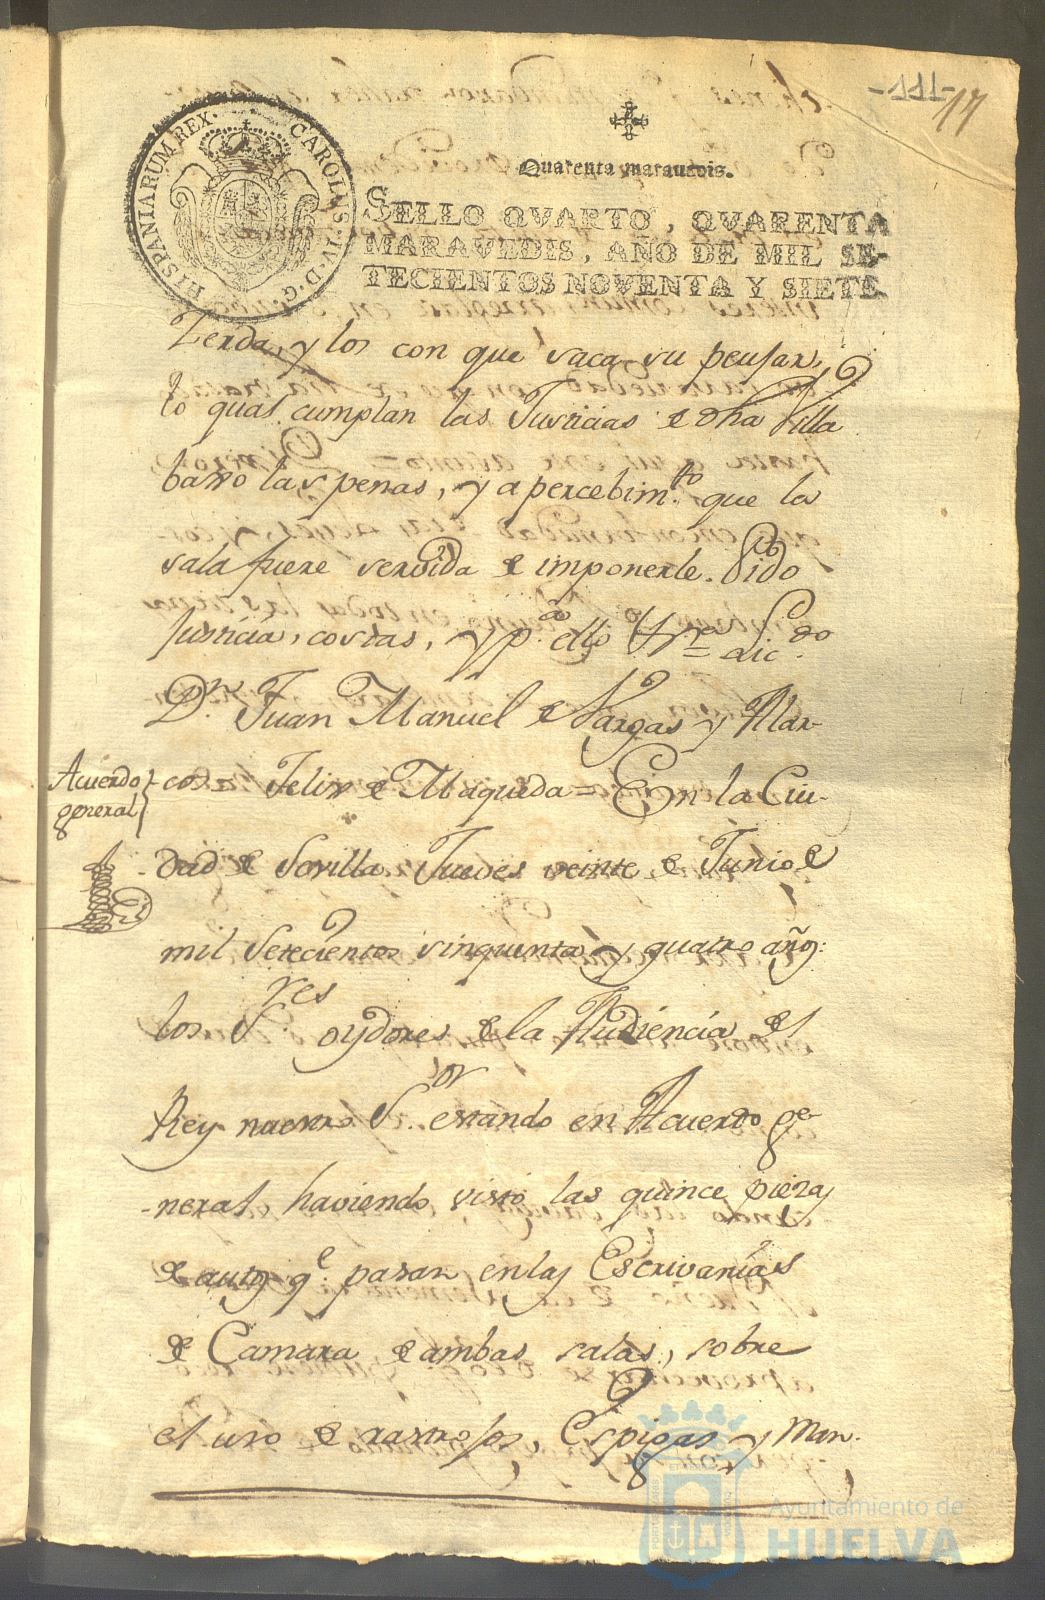 -111-
17
HISPANIARUM REX. CAROLUS IV D. G.
Quarenta maravedis.
SELLO QVARTO, QVARENTA
MARAVEDIS, AÑO DE MIL SE-
TECIENTOS NOVENTA Y SIETE
Zerda, y los con que saca su peujar,
lo qual cumplan las Justicias de dha Villa
baxo las penas, y apercebim.to que la
sala fuere servida de imponerle. Pido
Justicia, costas, y p.a ello &c.a = Lic.do
D.n Juan Manuel de Vargas y Mar-
Acuerdo
general
cos = Felix de Maqueda = En la Ciu-
dad de Sevilla Jueves veinte de Junio de
mil setecientos sinquenta y quatro años:
los S.res oydores de la Audiencia del
Rey nuestro S.or estando en Acuerdo ge-
neral haviendo visto las quince piezas
de autos q.e pasan en las Escrivanias
de Camara de ambas salas, sobre
el uso de rastrojos, Espigas y Man-
Ayuntamiento de
HUELVA